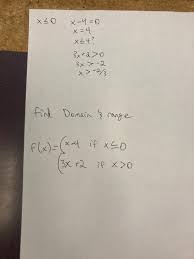 x≤0 x-4=0
x=4
x≤4?
3x+2>0
3x>-2
x>-2/3
find Domain & range
f(x)={x-4 if x≤0
{3x+2 if x>0